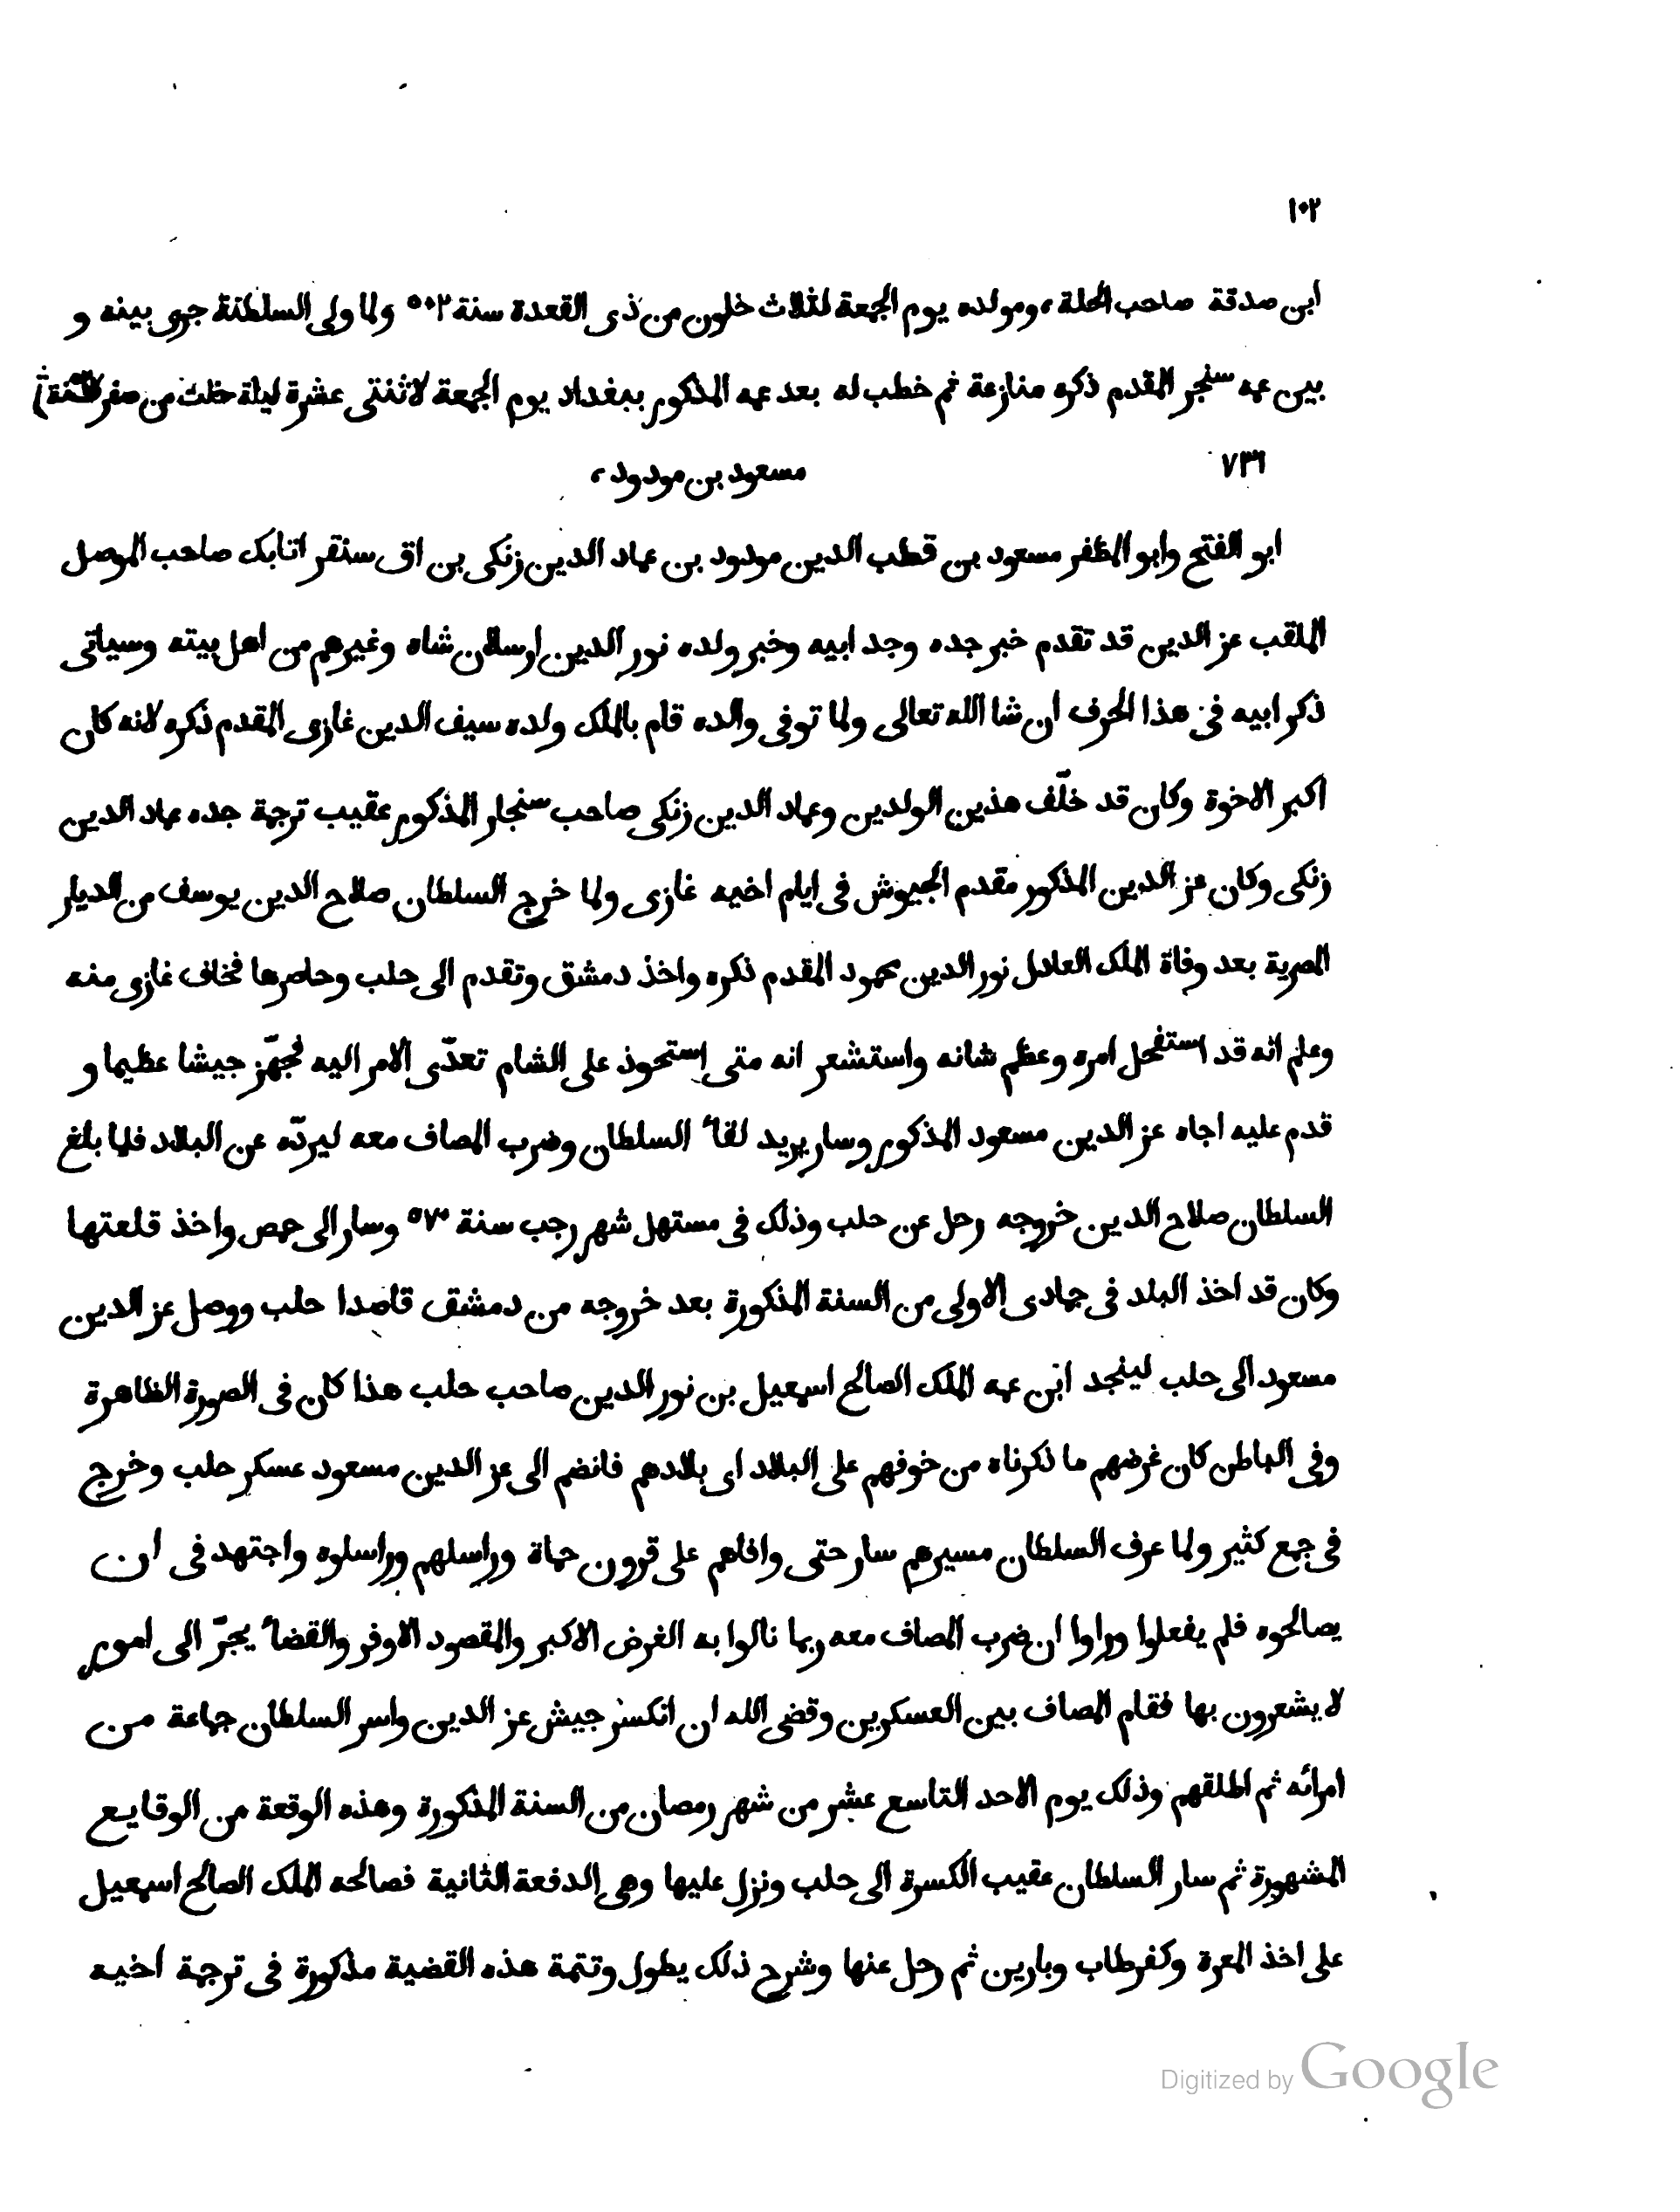 ١٠٢
ابن صدقة صاحب الحلة، ومولده يوم الجمعة لثلاث خلون من ذى القعدة سنة ٥٠٢ ولما ولى السلطنة جرى بينه و
بين عمه سنجر المقدم ذكره منازعة ثم خطب له بعد عمه المذكور ببغداد يوم الجمعة لاثنتى عشرة ليلة خلت من صفر
٧٣٦
مسعود بن مودود،
ابو الفتح وابو المظفر مسعود بن قطب الدين مودود بن عماد الدين زنكى بن اق سنقر اتابك صاحب الموصل
الملقب عز الدين قد تقدم خبر جده وجد ابيه وخبر ولده نور الدين ارسلان شاه وغيرهم من اهل بيته وسياتى
ذكر ابيه فى هذا الحرف ان شا الله تعالى ولما توفى والده قام بالملك ولده سيف الدين غازى المقدم ذكره لانه كان
اكبر الاخوة وكان قد خلّف هذين الولدين وعماد الدين زنكى صاحب سنجار المذكور عقيب ترجمة جده عماد الدين
زنكى وكان عز الدين المذكور مقدم الجيوش فى ايام اخيه غازى ولما خرج السلطان صلاح الدين يوسف من الديار
المصرية بعد وفاة الملك العادل نور الدين محمود المقدم ذكره واخذ دمشق وتقدم الى حلب وحاصرها فخاف غازى منه
وعلم انه قد استفحل امره وعظم شانه واستشعر انه متى استحوذ على الشام تعدّى الامر اليه فجهّز جيشا عظيما و
قدم عليه اجاه عز الدين مسعود المذكور وسار يريد لقاء السلطان وضرب المصاف معه ليردّه عن البلاد فلما بلغ
السلطان صلاح الدين خروجه رحل عن حلب وذلك فى مستهل شهر رجب سنة ٥٧٠ وسار الى حمص واخذ قلعتها
وكان قد اخذ البلد فى جمادى الاولى من السنة المذكورة بعد خروجه من دمشق قاصدا حلب ووصل عز الدين
مسعود الى حلب لينجد ابن عمه الملك الصالح اسمعيل بن نور الدين صاحب حلب هذا كان فى الصورة الظاهرة
وفى الباطن كان غرضهم ما ذكرناه من خوفهم على البلاد اى بلادهم فانضم الى عز الدين مسعود عسكر حلب وخرج
فى جمع كثير ولما عرف السلطان مسيرهم سار حتى وافاهم على قرون حماة وراسلهم وراسلوه واجتهد فى ان
يصالحوه فلم يفعلوا وراوا ان ضرب المصاف معه ربما نالوا به الغرض الاكبر والمقصود الاوفر والقضاء يجرّ الى امور
لا يشعرون بها فقام المصاف بين العسكرين وقضى الله ان انكسر جيش عز الدين واسر السلطان جماعة من
امرائه ثم اطلقهم وذلك يوم الاحد التاسع عشر من شهر رمصان من السنة المذكورة وهذه الوقعة من الوقايع
المشهورة ثم سار السلطان عقيب الكسرة الى حلب ونزل عليها وهى الدفعة الثانية فصالحه الملك الصالح اسمعيل
على اخذ المعرة وكفرطاب وبارين ثم رحل عنها وشرح ذلك يطول وتتمة هذه القضية مذكورة فى ترجمة اخيه
Digitized by Google